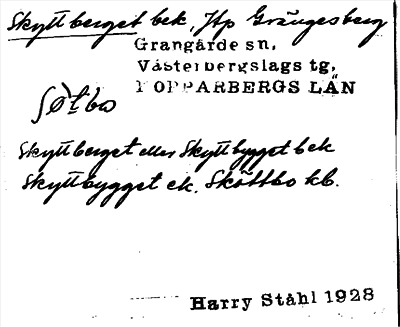 Skyttberget bek, Hp Grängesberg
Grangärde sn.
Västerbergslags tg,
KOPPARBERGS LÄN
Skyttberget eller Skyttbygget bek
Skyttbygget ek. Sköttbo kb.
Harry Ståhl 1928